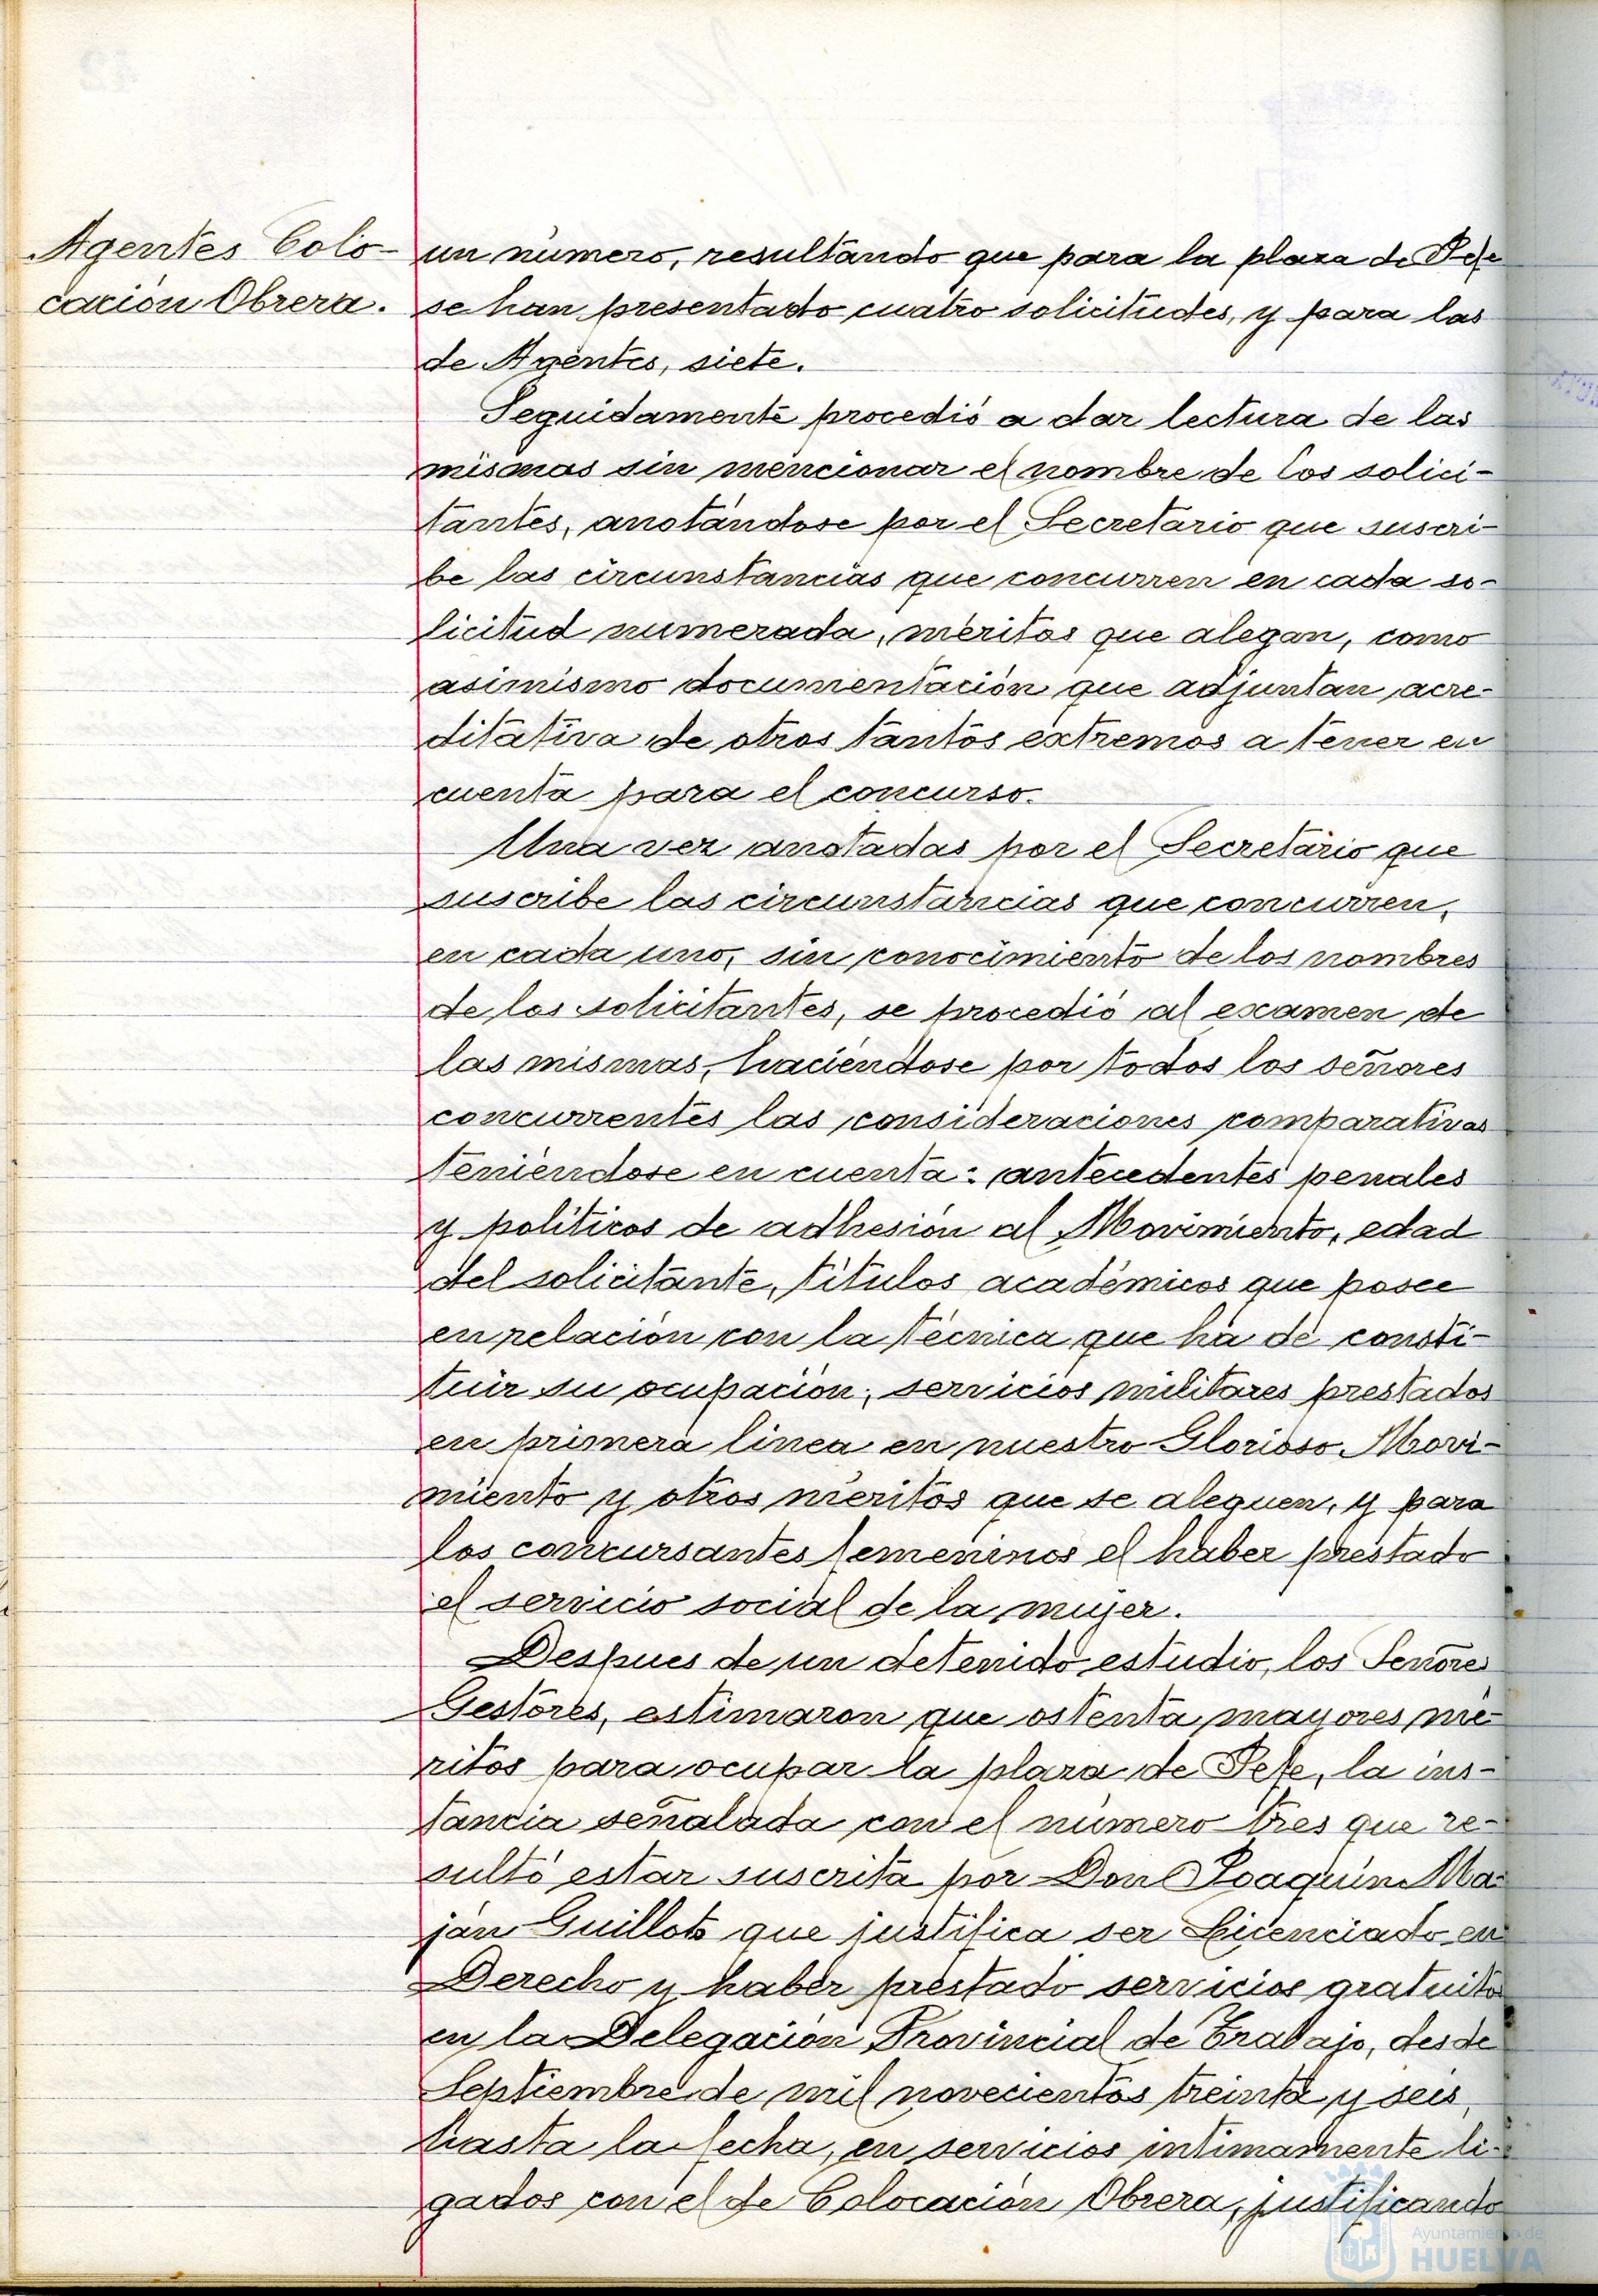 Agentes Colo-
cación Obrera.
un número, resultando que para la plaza de Jefe
se han presentado cuatro solicitudes, y para las
de Agentes, siete.
Seguidamente procedió a dar lectura de las
mismas sin mencionar el nombre de los solici-
tantes, anotándose por el Secretario que suscri-
be las circunstancias que concurren en cada so-
licitud numerada, méritos que alegan, como
asimismo documentación que adjuntan acre-
ditativa de otros tantos extremos a tener en
cuenta para el concurso.
Una vez anotadas por el Secretario que
suscribe las circunstancias que concurren,
en cada uno, sin conocimiento de los nombres
de los solicitantes, se procedió al examen de
las mismas, haciéndose por todos los señores
concurrentes las consideraciones comparativas
teniéndose en cuenta: antecedentes penales
y políticos de adhesión al Movimiento, edad
del solicitante, títulos académicos que posee
en relación con la técnica que ha de consti-
tuir su ocupación, servicios militares prestados
en primera línea en nuestro Glorioso Movi-
miento y otros méritos que se aleguen, y para
los concursantes femeninos el haber prestado
el servicio social de la mujer.
Despues de un detenido estudio, los Señores
Gestores, estimaron que ostenta mayores mé-
ritos para ocupar la plaza de Jefe, la ins-
tancia señalada con el número tres que re-
sultó estar suscrita por Don Joaquín Ma-
ján Guilloto que justifica ser Licenciado en
Derecho y haber prestado servicios gratuitos
en la Delegación Provincial de Trabajo, desde
Septiembre de mil novecientos treinta y seis,
hasta la fecha, en servicios intimamente li-
gados con el de Colocación Obrera, justificando
Ayuntamiento de
HUELVA